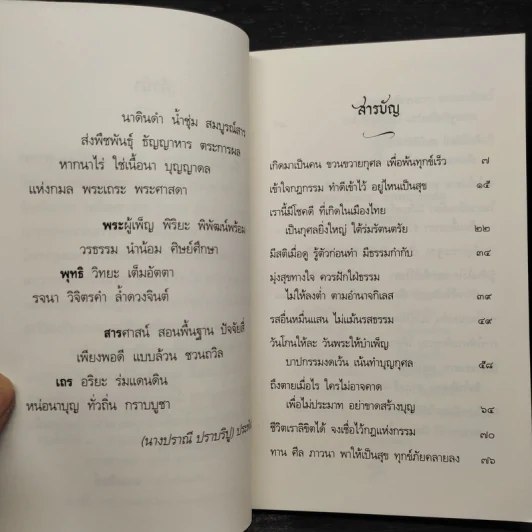 นาดินดำ น้ำชุ่ม สมบูรณ์สาร
ส่งพืชพันธุ์ ธัญญาหาร ตระการผล
หากนาไร่ ใช่เนื้อนา บุญญาดล
แห่งกมล พระเถระ พระศาสดา
พระผู้เพ็ญ พิริยะ พิพัฒน์พร้อม
วรธรรม นำน้อม ศิษย์ศึกษา
พุทธิ วิทยะ เต็มอัตตา
รจนา วิจิตรคำ ล้ำดวงจินต์
สารศาสน์ สอนพื้นฐาน ปัจจัยสี่
เพียงพอดี แบบล้วน ชวนถวิล
เถร อริยะ ร่มแดนดิน
หน่อนาบุญ ทั่วถิ่น กราบบูชา
(นางปราณี ปราบริปู)
สารบัญ
เกิดมาเป็นคน ขวนขวายกุศล เพื่อพ้นทุกข์เร็ว ๗
เข้าใจกฎกรรม ทำดีเข้าไว้ อยู่ไหนเป็นสุข ๑๕
เรานี้มีโชคดี ที่เกิดในเมืองไทย
เป็นกุศลยิ่งใหญ่ ใต้ร่มรัตนตรัย ๒๒
มีสติเมื่อดู รู้ตัวก่อนทำ มีธรรมกำกับ ๓๔
มุ่งสุขทางใจ ควรฝักใฝ่ธรรม
ไม่ให้ลงต่ำ ตามอำนาจกิเลส ๓๙
รสอื่นหมื่นแสน ไม่แม้นรสธรรม ๔๙
วันโกนให้ละ วันพระให้บำเพ็ญ
บาปกรรมงดเว้น เน้นทำบุญกุศล ๕๘
ถึงตายเมื่อไร ใครไม่อาจคาด
เพื่อไม่ประมาท อย่าขาดสร้างบุญ ๖๔
ชีวิตเราลิขิตได้ จงเชื่อไว้กฎแห่งกรรม ๗๐
ทาน ศีล ภาวนา พาให้เป็นสุข ทุกข์ภัยคลายลง ๗๖